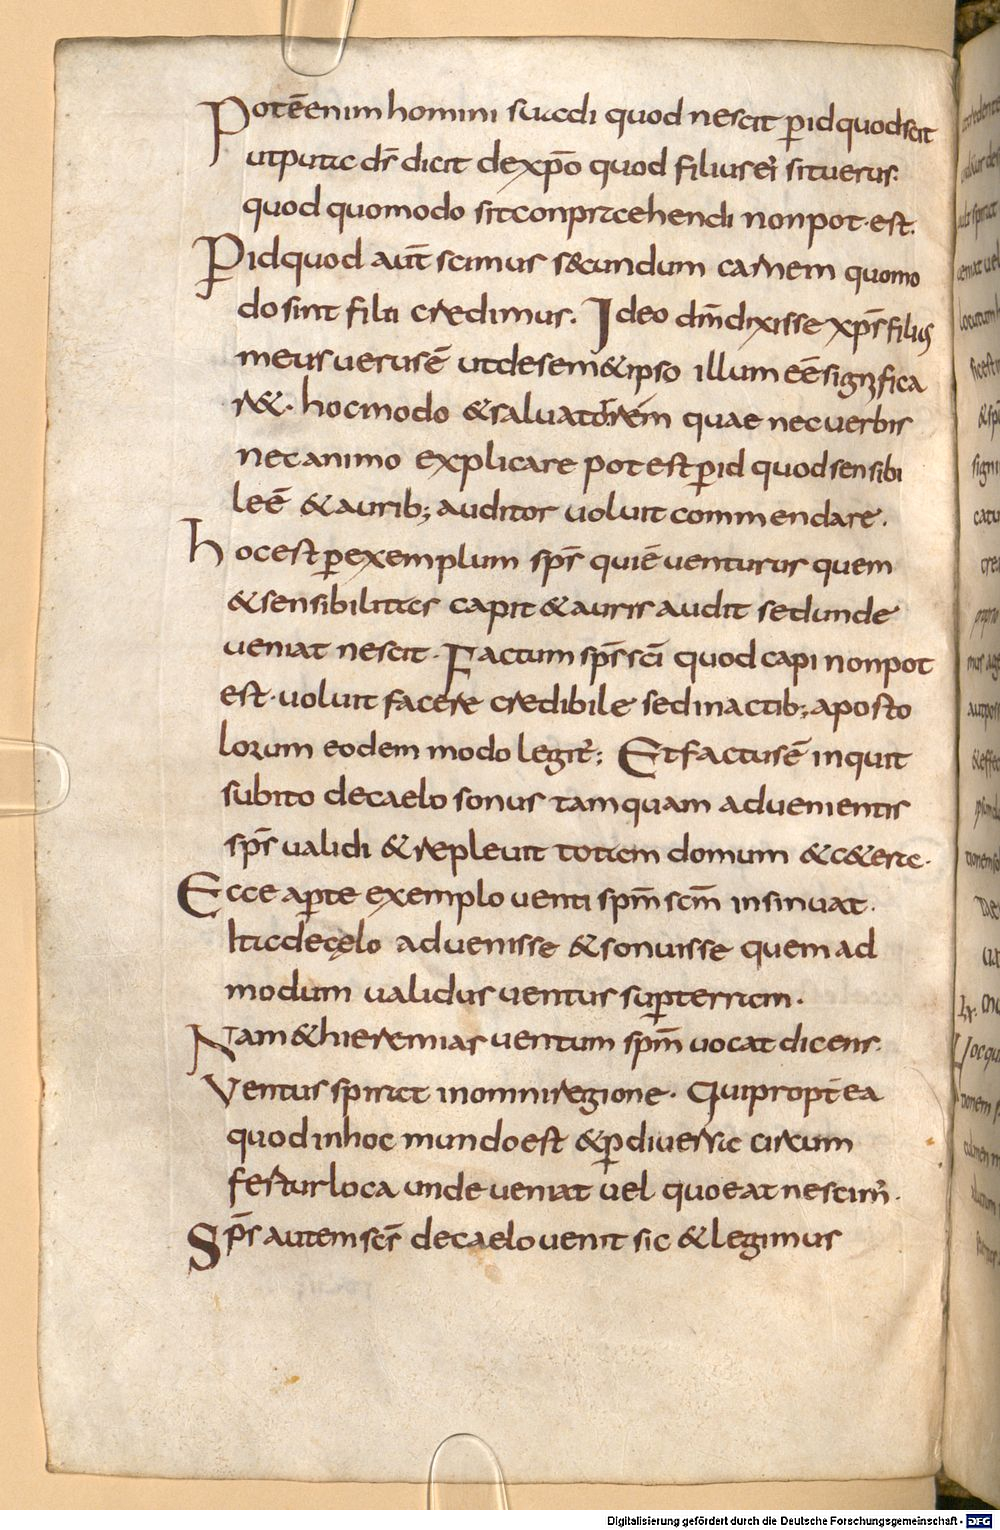 Potēenim homini suadi quod nescit ꝑid quod scit
utputa dr̄ dicit dexp̄o quod filiusei situerus.
quod quomodo sitconpraehendi nonpot·est.
Pidquod aut̄ scimus s&cundum carnem quomo
dosint filii credimus. Ideo dm̄dixisse xp̄sfilius
meusuerusē utdesem&ipso illumeē significa
r&. hocmodo &saluatorem quae necuerbis
necanimo explicare potestꝑid quodsensibi
leē &aurib; auditor uoluit commendare.
hocestꝑexemplum sp̄s quiēuenturus quem
&sensibilitas capit &auris audit sedunde
ueniat nescit. Factum sp̄ssc̄i quodcapi nonpot
est. uoluit facere credibile sedinactib; aposto
lorum eodem modo legit̄; Etfactusē inquit
subito decaelo sonus tamquam aduenientis
sp̄s ualidi &repleuit totam domum &c&era.
Ecce aꝑte exemplo uenti sp̄m sc̄m insinuat.
Itadecęlo aduenisse &sonuisse quemad
modum ualidus uentus suꝑterram.
Nam&hieremias uentum sp̄m uocat dicens.
Uentus spirat inomniregione. Quipropt̄ea
quodinhoc mundoest &ꝑdiuersa circum
fertur loca unde ueniat uel quoeat nescim̄.
Sp̄s autemsc̄s decaelouenit sic &legimus
Digitalisierung gefördert durch die Deutsche Forschungsgemeinschaft - DFG